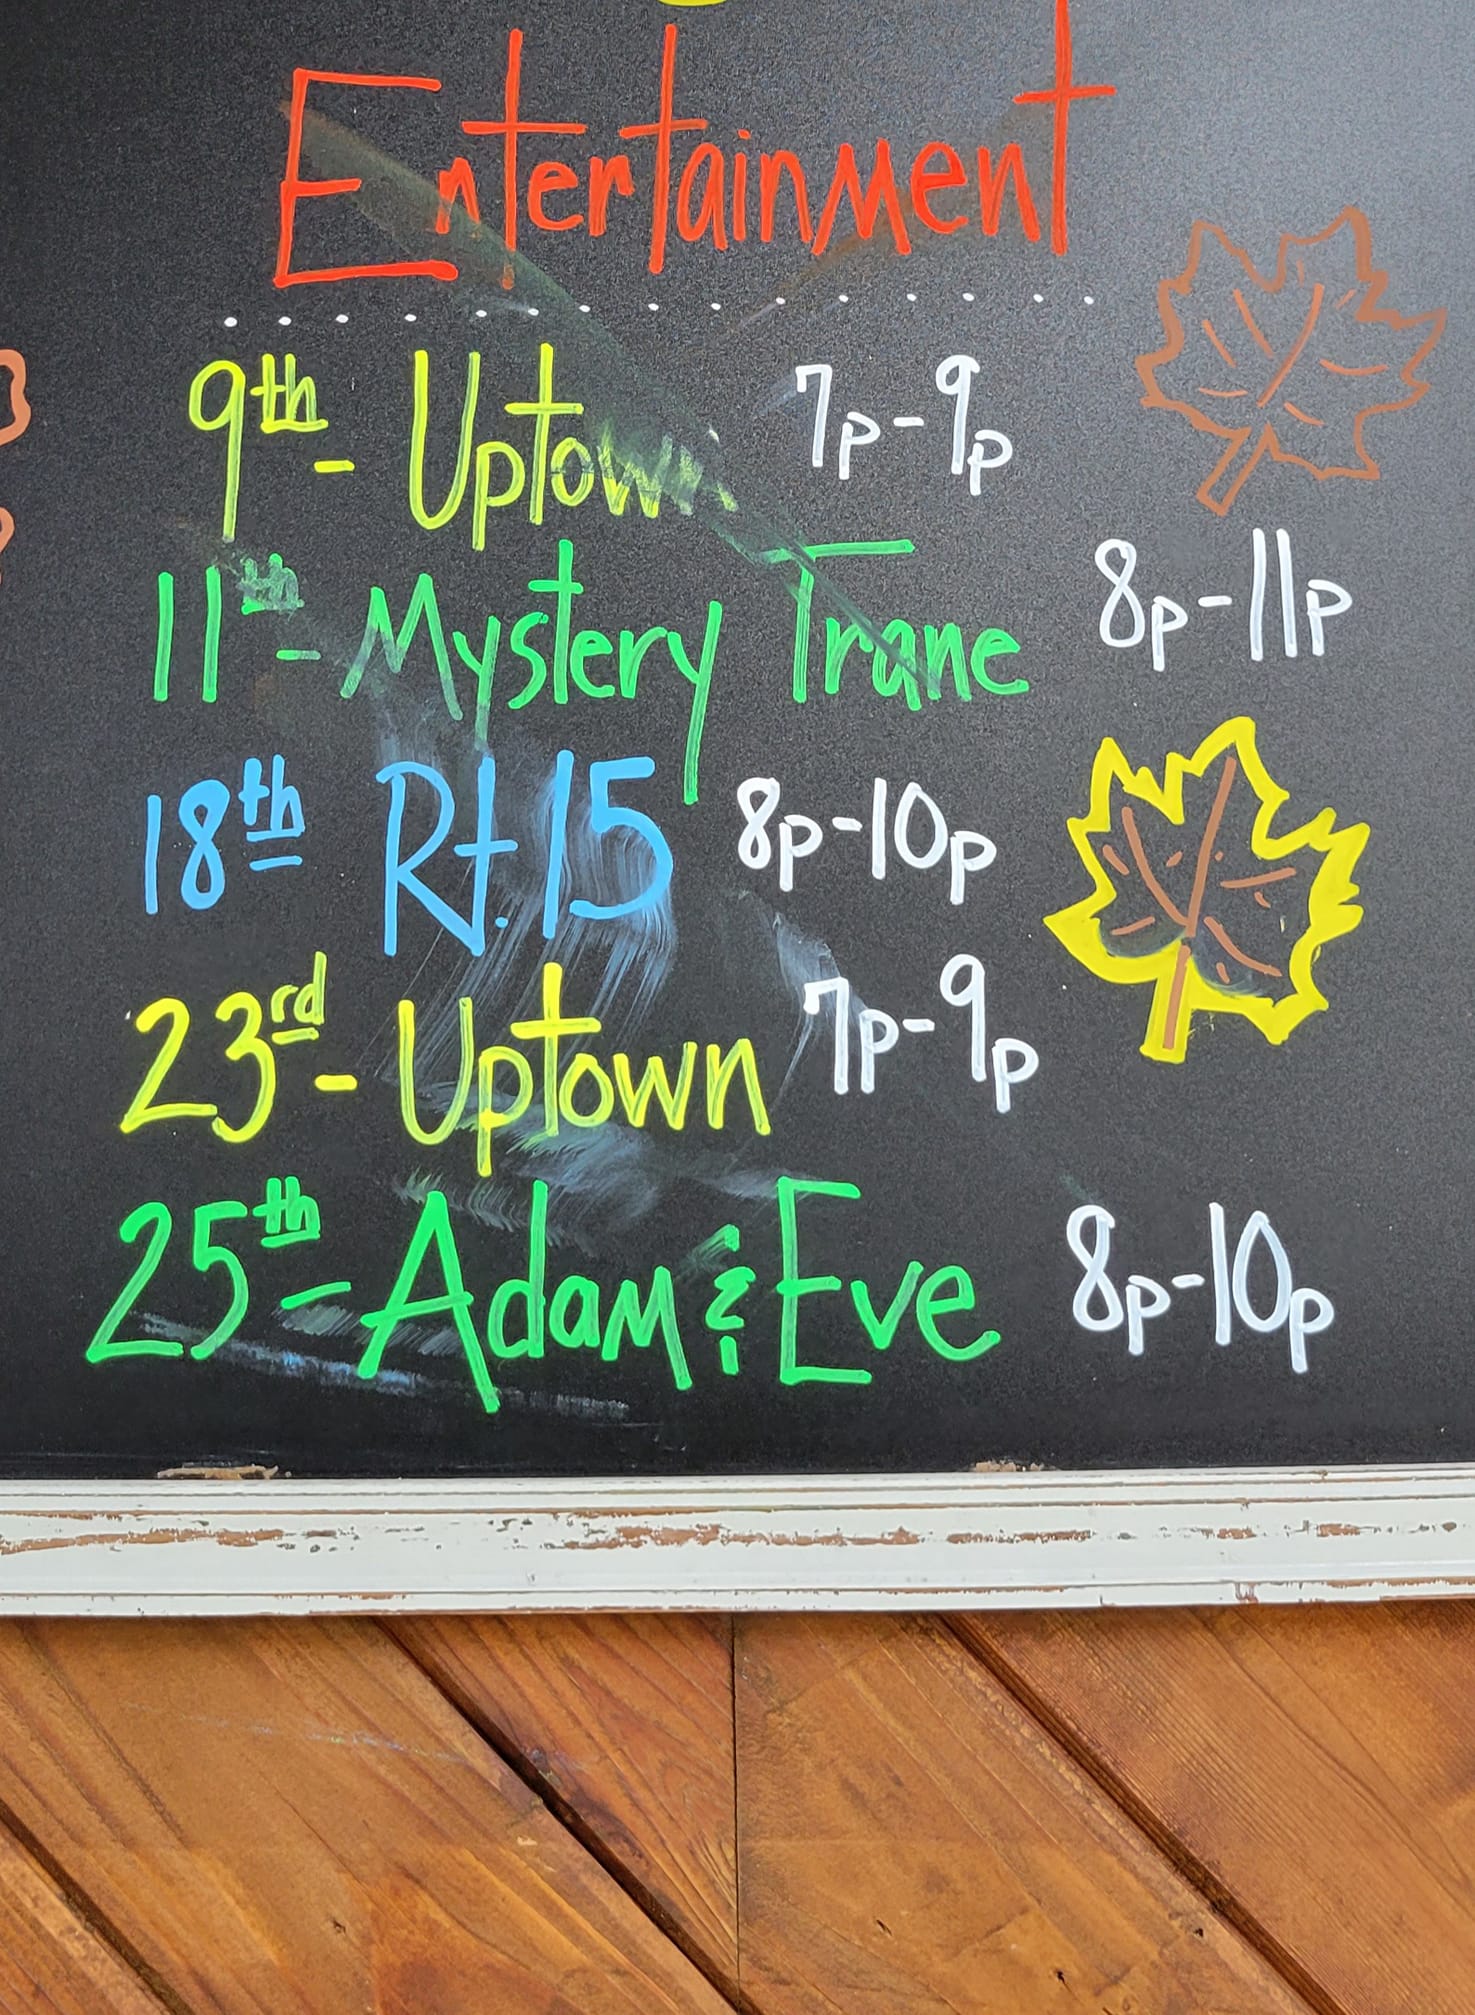 Entertainment
9th - Uptown 7p-9p
11th - Mystery Trane 8p-11p
18th Rt.15 8p-10p
23rd - Uptown 7p-9p
25th - Adam & Eve 8p-10p